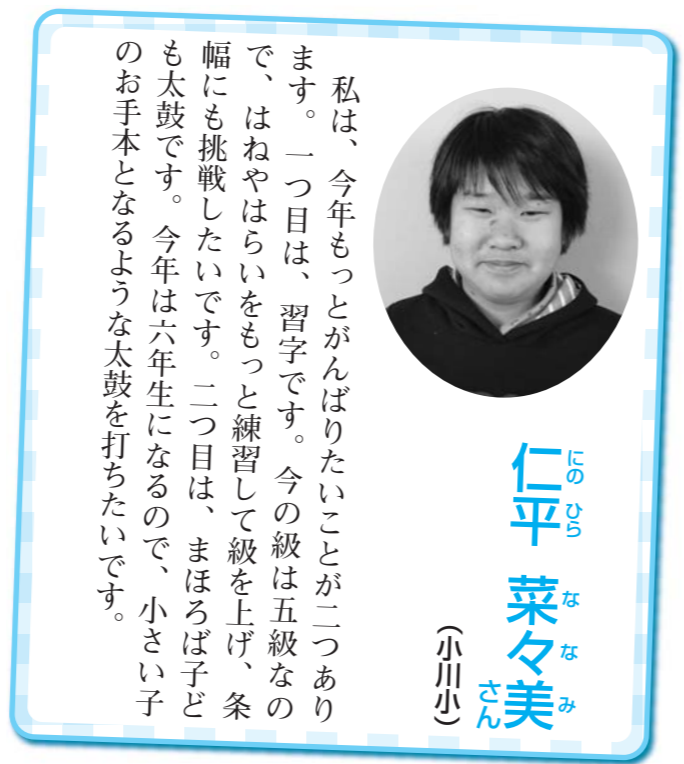 仁平 菜々美さん
にの ひら な な み
（小川小）
私は、今年もっとがんばりたいことが二つあり
ます。一つ目は、習字です。今の級は五級なの
で、はねやはらいをもっと練習して級を上げ、条
幅にも挑戦したいです。二つ目は、まほろば子ど
も太鼓です。今年は六年生になるので、小さい子
のお手本となるような太鼓を打ちたいです。